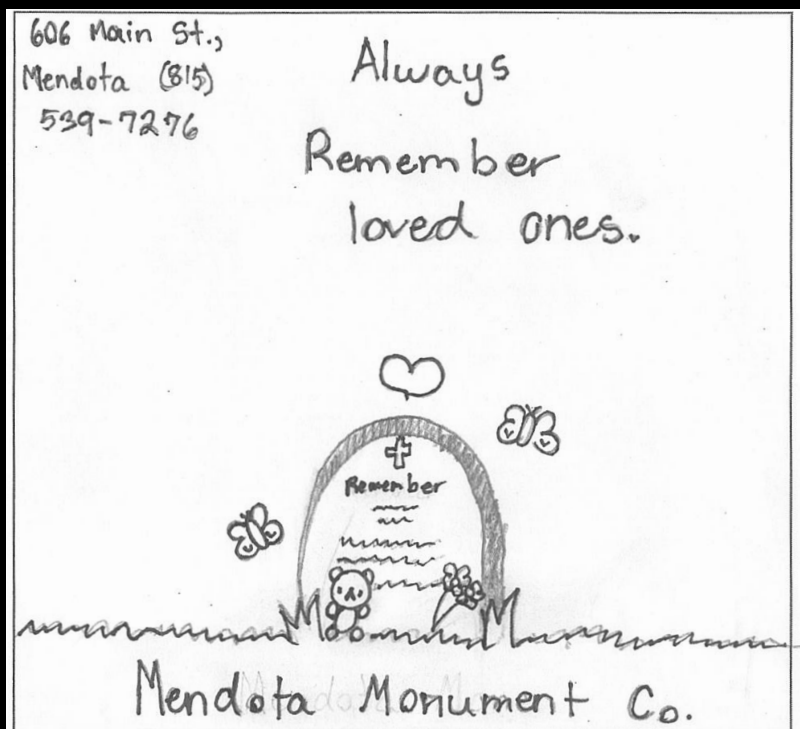 606 Main St.,
Mendota (815)
539-7276
Always
Remember
loved ones.
Remember
Mendota Monument Co.